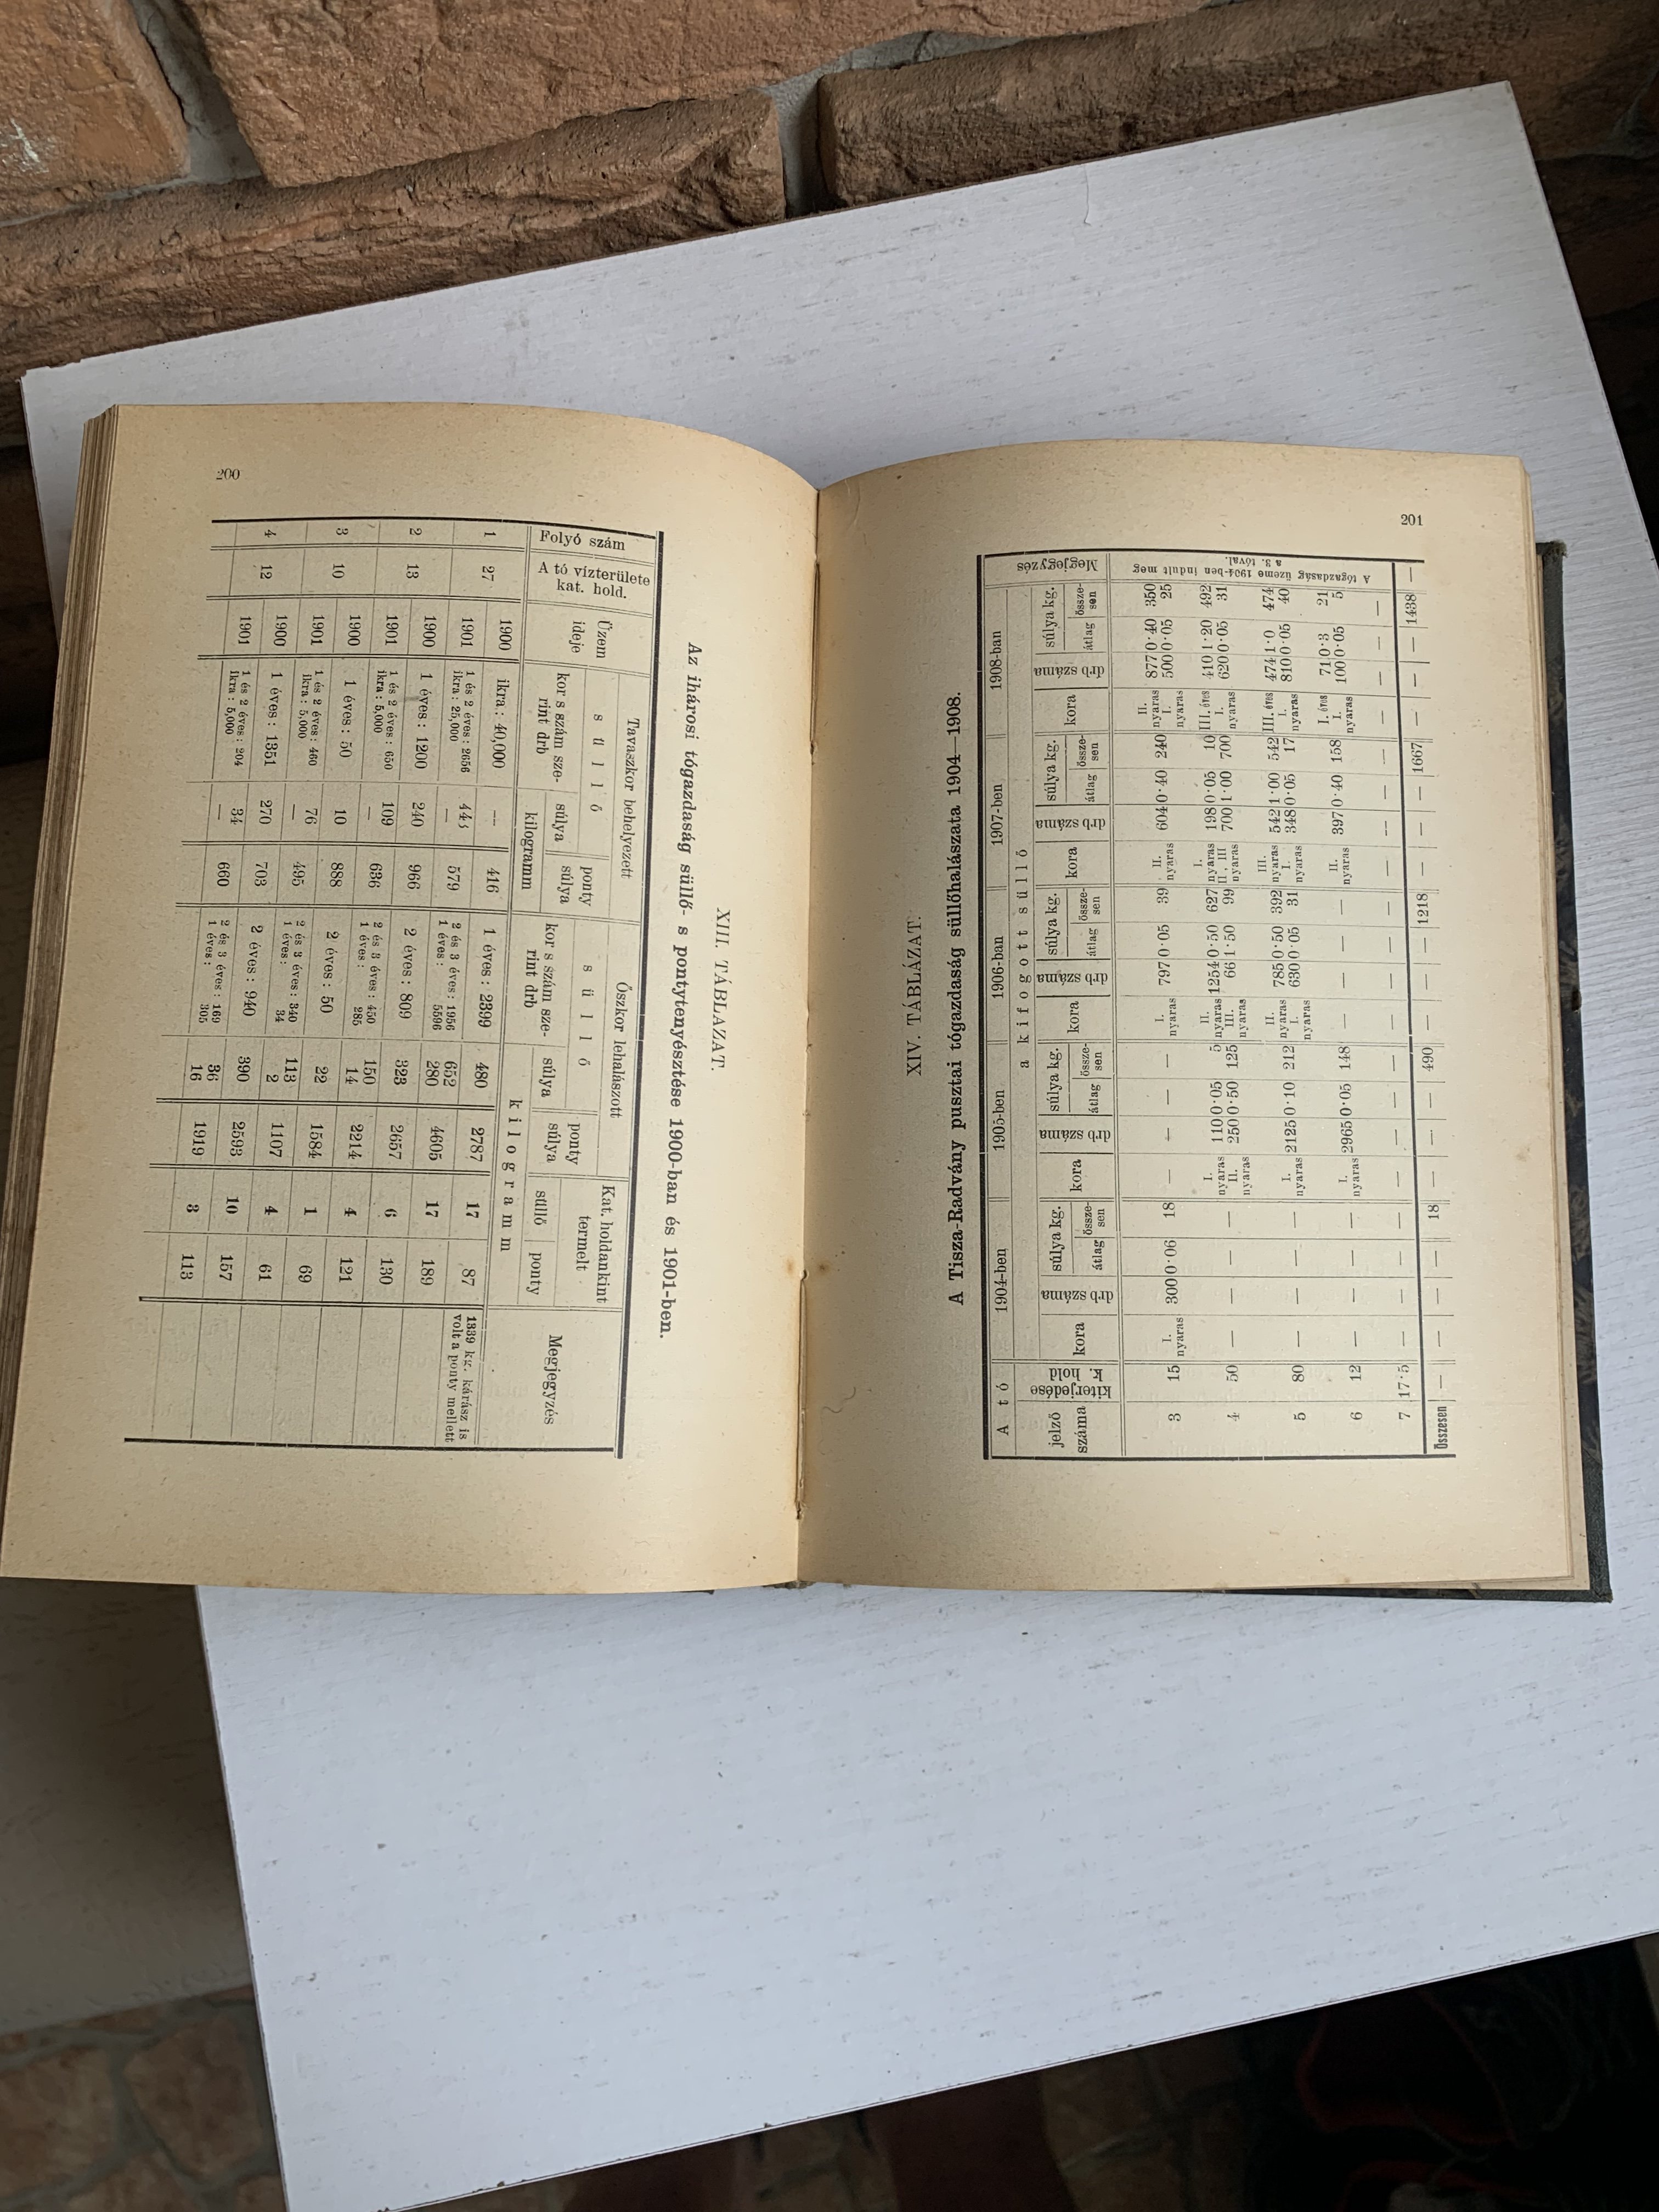 200
XIII. TÁBLÁZAT.
Az ihárosi tógazdaság süllő- s pontytenyésztése 1900-ban és 1901-ben.
Folyó szám
A tó vízterülete kat. hold.
Üzem ideje
Tavaszkor behelyezett
süllő
kor s szám sze-
rint drb
súlya
ponty súlya
kilogramm
Őszkor lehalászott
süllő
kor s szám sze-
rint drb
súlya
ponty súlya
Kat. holdankint termelt
süllő
ponty
kilogramm
Megjegyzés
1 27 1900 ikra.: 40,000 — 416 1 éves: 2399 480 2787 17 87 1339 kg. kárász is volt a ponty mellett
1901 1 és 2 éves: 2656 443 579 2 és 3 éves: 1956 652 4605 17 189
ikra: 25,000 — 1 éves: 5596 280
2 13 1900 1 éves: 1200 240 966 2 éves: 809 323 2657 6 130
1901 1 és 2 éves: 650 109 636 2 és 3 éves: 450 150 2214 4 121
ikra: 5,000 — 1 éves: 285 14
3 10 1900 1 éves: 50 10 888 2 éves: 50 22 1584 1 69
1901 1 és 2 éves: 460 76 495 2 és 3 éves: 340 113 1107 4 61
ikra: 5,000 — 1 éves: 34 2
4 12 1900 1 éves: 1351 270 703 2 éves: 940 390 2593 10 157
1901 1 és 2 éves: 204 34 660 2 és 3 éves: 169 36 1919 3 113
ikra: 5,000 — 1 éves: 305 16
201
XIV. TÁBLÁZAT.
A Tisza-Radvány pusztai tógazdaság süllőhalászata 1904—1908.
A tó
jelző száma
kiterjedése K. hold
a kifogott süllő
1904-ben
kora
drb száma
súlya kg.
átlag
össze-
sen
1905-ben
kora
drb száma
súlya kg.
átlag
össze-
sen
1906-ban
kora
drb száma
súlya kg.
átlag
össze-
sen
1907-ben
kora
drb száma
súlya kg.
átlag
össze-
sen
1908-ban
kora
drb száma
súlya kg.
átlag
össze-
sen
Megjegyzés
3 15 I. nyaras 300 0·06 18 — — — — I. nyaras 797 0·05 39 II. nyaras 604 0·40 240 II. nyaras 877 0·40 350
I. nyaras 500 0·05 25
4 50 — — — — I. nyaras 110 0·05 5 II. nyaras 1254 0·50 627 I. nyaras 198 0·05 10 III. éves 410 1·20 492
II. nyaras 250 0·50 125 III. nyaras 66 1·50 99 II. III nyaras 700 1·00 700 I. nyaras 620 0·05 31
5 80 — — — — I. nyaras 2125 0·10 212 II. nyaras 785 0·50 392 III. nyaras 542 1·00 542 III. éves 474 1·0 474
I. nyaras 630 0·05 31 I. nyaras 348 0·05 17 I. nyaras 810 0·05 40
6 12 — — — — I. nyaras 2965 0·05 148 — — — — II. nyaras 397 0·40 158 I. éves 71 0·3 21
I. nyaras 100 0·05 5
7 17·5 — — — — — — — — — — — — — — — — — — — —
Összesen — — — — 18 — — — 490 — — — 1218 — — — 1667 — — — 1438 —
A tógazdaság üzeme 1904-ben indult meg a 3. tóval.